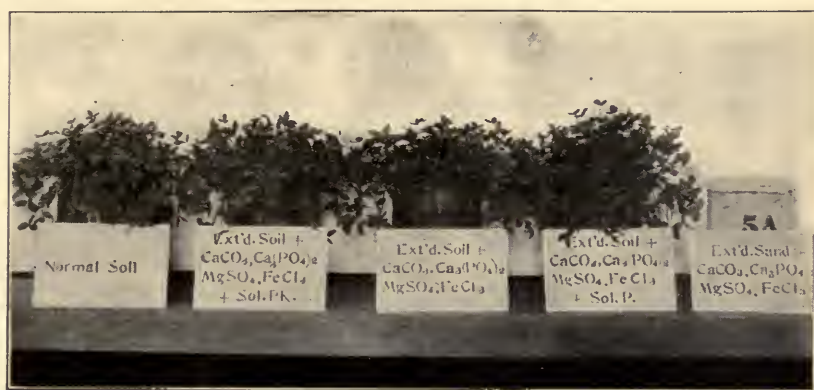 Normal Soil
Ext'd. Soil +
CaCO₃, Ca₃(PO₄)₂
MgSO₄, FeCl₃
+ Sol. PK.
Ext'd. Soil +
CaCO₃, Ca₃(PO₄)₂
MgSO₄, FeCl₃
Ext'd. Soil +
CaCO₃, Ca₃(PO₄)₂
MgSO₄, FeCl₃
+ Sol. P.
5A
Ext'd. Sand +
CaCO₃, Ca₃PO₄
MgSO₄, FeCl₃